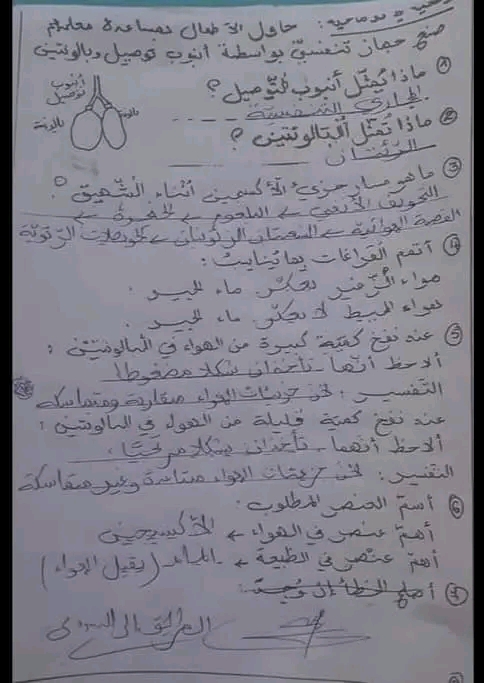 حاول الأطفال بمساعدة معلمهم
صنع جهاز تنفسيّ بواسطة أنبوب توصيل وبالونتين
① ماذا يُمثّل أنبوب التّوصيل ؟
المجاري التنفسية
أنبوب توصيل
بالونة
بالونة
② ماذا تُمثّل البالونتين ؟
الرّئتان
③ ما هو مسار جزيء الأكسجين أثناء الشّهيق ؟
التجويف الأنفي ← البلعوم ← الحنجرة ←
القصبة الهوائية ← الشعبتان الرئويتان ← الحويصلات الرّئويّة
④ أتمم الفراغات بما يناسب :
هواء الزّفير يعكّر ماء الجير .
هواء المحيط لا يعكّر ماء الجير .
⑤ عند نفخ كميّة كبيرة من الهواء في البالونتين :
ألاحظ أنّهما تأخذان شكلا مضغوطا
التّفسير : لأن جزيئات الهواء متقاربة ومتماسكة
عند نفخ كمية قليلة من الهواء في البالونتين :
ألاحظ أنهما تأخذان شكلا مرتخيا .
التفسير : لأن جزيئات الهواء متباعدة وغير متماسكة
⑥ أسمّ العنصر المطلوب :
أهمّ عنصر في الهواء ← الأكسيجين
أهمّ عنصر في الطبيعة ← الماء (يقبل الهواء)
⑦ أصلح الخطأ إن وُجِدَ